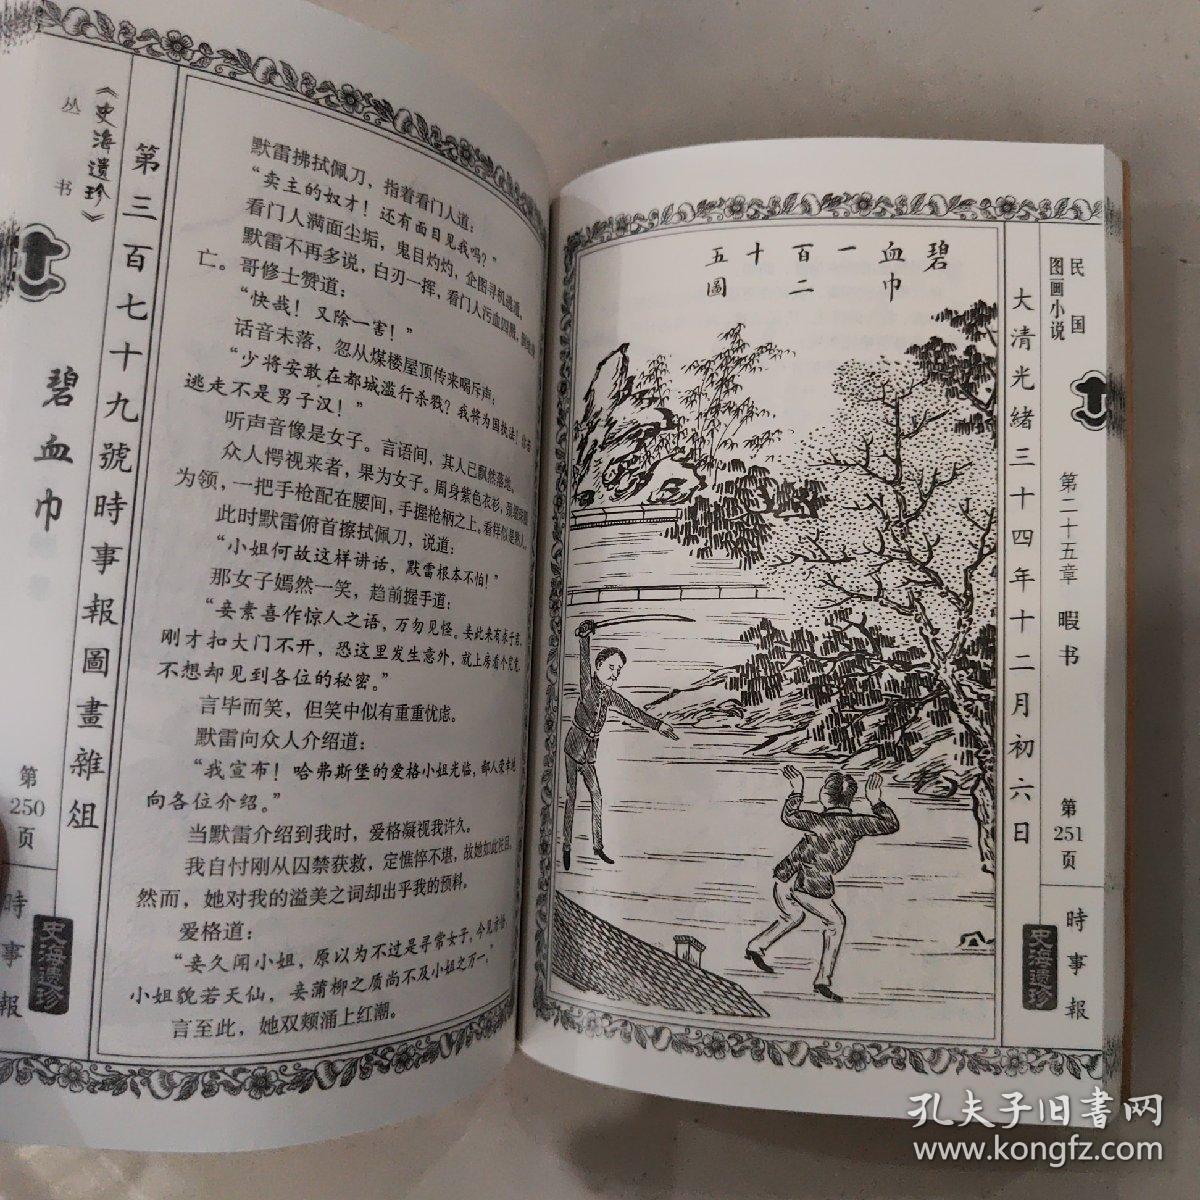 《史海遗珍》
丛书
碧血巾
第250页
第三百七十九號時事報圖畫雜俎
時事報
史海遗珍
默雷拂拭佩刀，指着看门人道：
“卖主的奴才！还有面目见我吗？”
看门人满面尘垢，鬼目灼灼，企图寻机逃遁。
默雷不再多说，白刃一挥，看门人污血四溅，
亡。哥修士赞道：
“快哉！又除一害！”
话音未落，忽从煤楼屋顶传来喝斥声：
“少将安敢在都城滥行杀戮？我将为国执法！
逃走不是男子汉！”
听声音像是女子。言语间，其人已飘然落地。
众人愕视来者，果为女子。周身紫色衣衫，
为领，一把手枪配在腰间，手握枪柄之上。看样似是熟人。
此时默雷俯首擦拭佩刀，说道：
“小姐何故这样讲话，默雷根本不怕！”
那女子嫣然一笑，趋前握手道：
“妾素喜作惊人之语，万勿见怪。妾此来有
刚才扣大门不开，恐这里发生意外，就上房看个究竟，
不想却见到各位的秘密。”
言毕而笑，但笑中似有重重忧虑。
默雷向众人介绍道：
“我宣布！哈弗斯堡的爱格小姐光临，鄙人荣幸地
向各位介绍。”
当默雷介绍到我时，爱格凝视我许久。
我自忖刚从囚禁获救，定憔悴不堪，故她如此
然而，她对我的溢美之词却出乎我的预料。
爱格道：
“妾久闻小姐，原以为不过是寻常女子，今见方信，
小姐貌若天仙，妾蒲柳之质尚不及小姐之万一。”
言至此，她双颊涌上红潮。
碧血巾
一百二十五圖
大清光緒三十四年十二月初六日
民国
图画小说
第二十五章 暇书
第251页
時事報
史海遗珍
孔夫子旧书网
www.kongfz.com